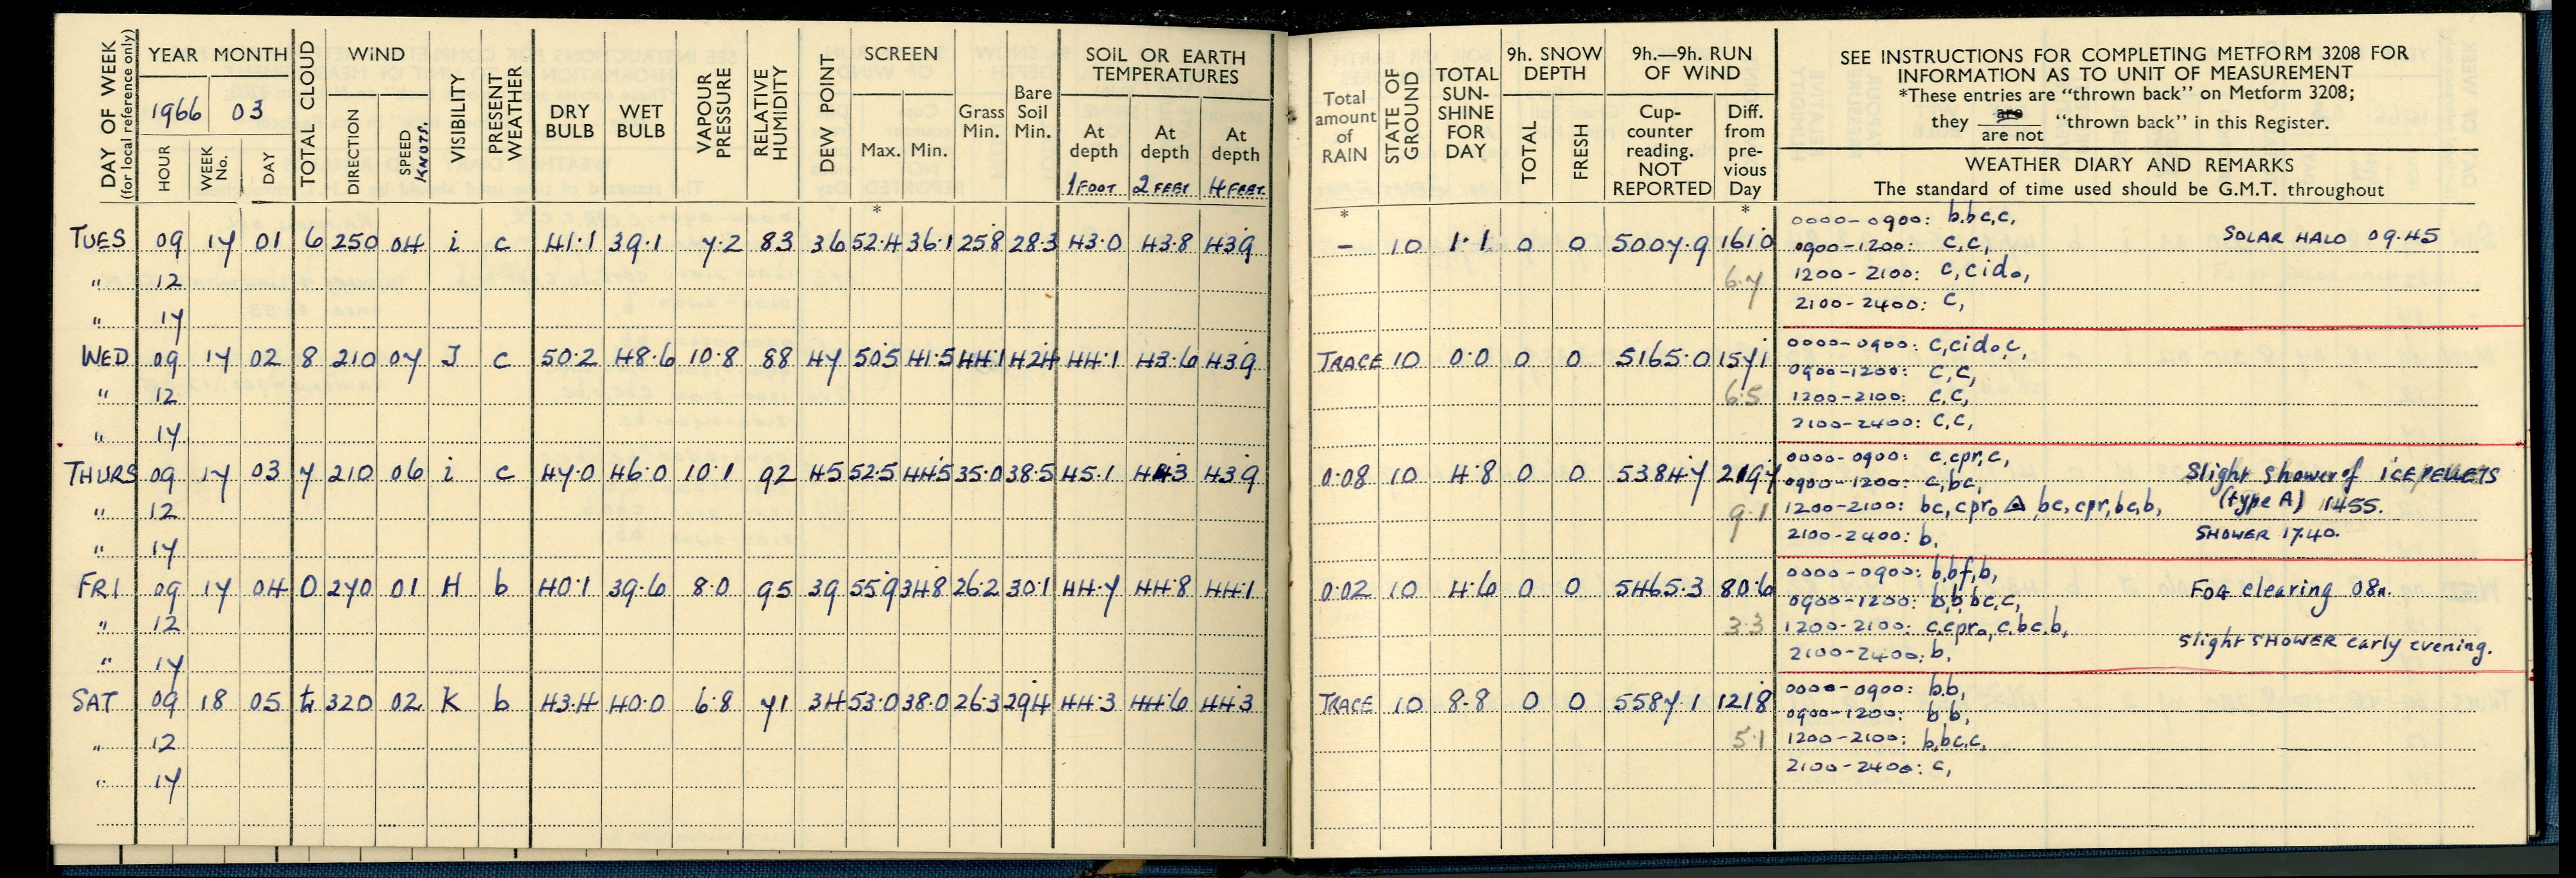 DAY OF WEEK (for local reference only)
YEAR MONTH
1966 03
HOUR WEEK No. DAY
TOTAL CLOUD
WIND
DIRECTION SPEED KNOTS.
VISIBILITY
PRESENT WEATHER
DRY BULB
WET BULB
VAPOUR PRESSURE
RELATIVE HUMIDITY
DEW POINT
SCREEN
Max. Min.
Grass Min.
Bare Soil Min.
SOIL OR EARTH TEMPERATURES
At depth 1 FOOT
At depth 2 FEET
At depth 4 FEET
*
TUES 09 17 01 6 250 04 i c 41.1 39.1 7.2 83 36 52.4 36.1 25.8 28.3 43.0 43.8 43.9
" 12
" 17
WED 09 17 02 8 210 07 J c 50.2 48.6 10.8 88 47 50.5 41.5 44.1 42.4 44.1 43.6 43.9
" 12
" 17
THURS 09 17 03 7 210 06 i c 47.0 46.0 10.1 92 45 52.5 44.5 35.0 38.5 45.1 44.3 43.9
" 12
" 17
FRI 09 17 04 0 270 01 H b 40.1 39.6 8.0 95 39 55.9 34.8 26.2 30.1 44.7 44.8 44.1
" 12
" 17
SAT 09 18 05 320 02 K b 43.4 40.0 6.8 71 34 53.0 38.0 26.3 29.4 44.3 44.6 44.3
" 12
" 17
Total amount of RAIN
STATE OF GROUND
TOTAL SUN-SHINE FOR DAY
9h. SNOW DEPTH
TOTAL FRESH
9h.—9h. RUN OF WIND
Cup-counter reading. NOT REPORTED
Diff. from pre-vious Day
SEE INSTRUCTIONS FOR COMPLETING METFORM 3208 FOR
INFORMATION AS TO UNIT OF MEASUREMENT
*These entries are "thrown back" on Metform 3208;
they are / are not "thrown back" in this Register.
WEATHER DIARY AND REMARKS
The standard of time used should be G.M.T. throughout
* *
– 10 1.1 0 0 5007.9 161.0
6.7
0000-0900: b.bc,c,
0900-1200: c,c, SOLAR HALO 09.45
1200-2100: c,cid₀,
2100-2400: c,
TRACE 10 0.0 0 0 5165.0 157.1
6.5
0000-0900: c,cid₀c,
0900-1200: c,c,
1200-2100: c,c,
2100-2400: c,c,
0.08 10 4.8 0 0 5384.7 219.7
9.1
0000-0900: c,cpr,c,
0900-1200: c,bc, Slight Shower of ICE PELLETS
1200-2100: bc,cpr₀ bc,cpr,bc,b, (type A) 1455.
2100-2400: b. SHOWER 17.40.
0.02 10 4.6 0 0 5465.3 80.6
3.3
0000-0900: b,bf,b,
0900-1200: b,b bc,c, FOG clearing 08h.
1200-2100: c,cpr₀,c.bc.b,
2100-2400: b, Slight SHOWER early evening.
TRACE 10 8.8 0 0 5587.1 121.8
5.1
0000-0900: b.b,
0900-1200: b b,
1200-2100: b,bc.c,
2100-2400: c,